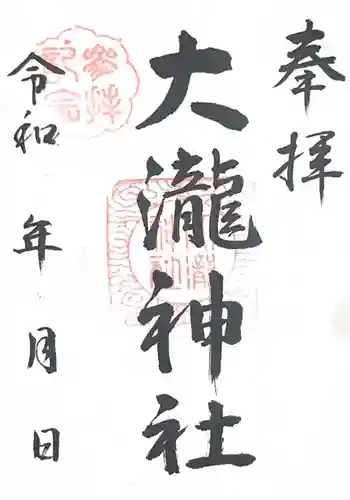 奉拝
大瀧神社
令和 年 月 日
参拝記念